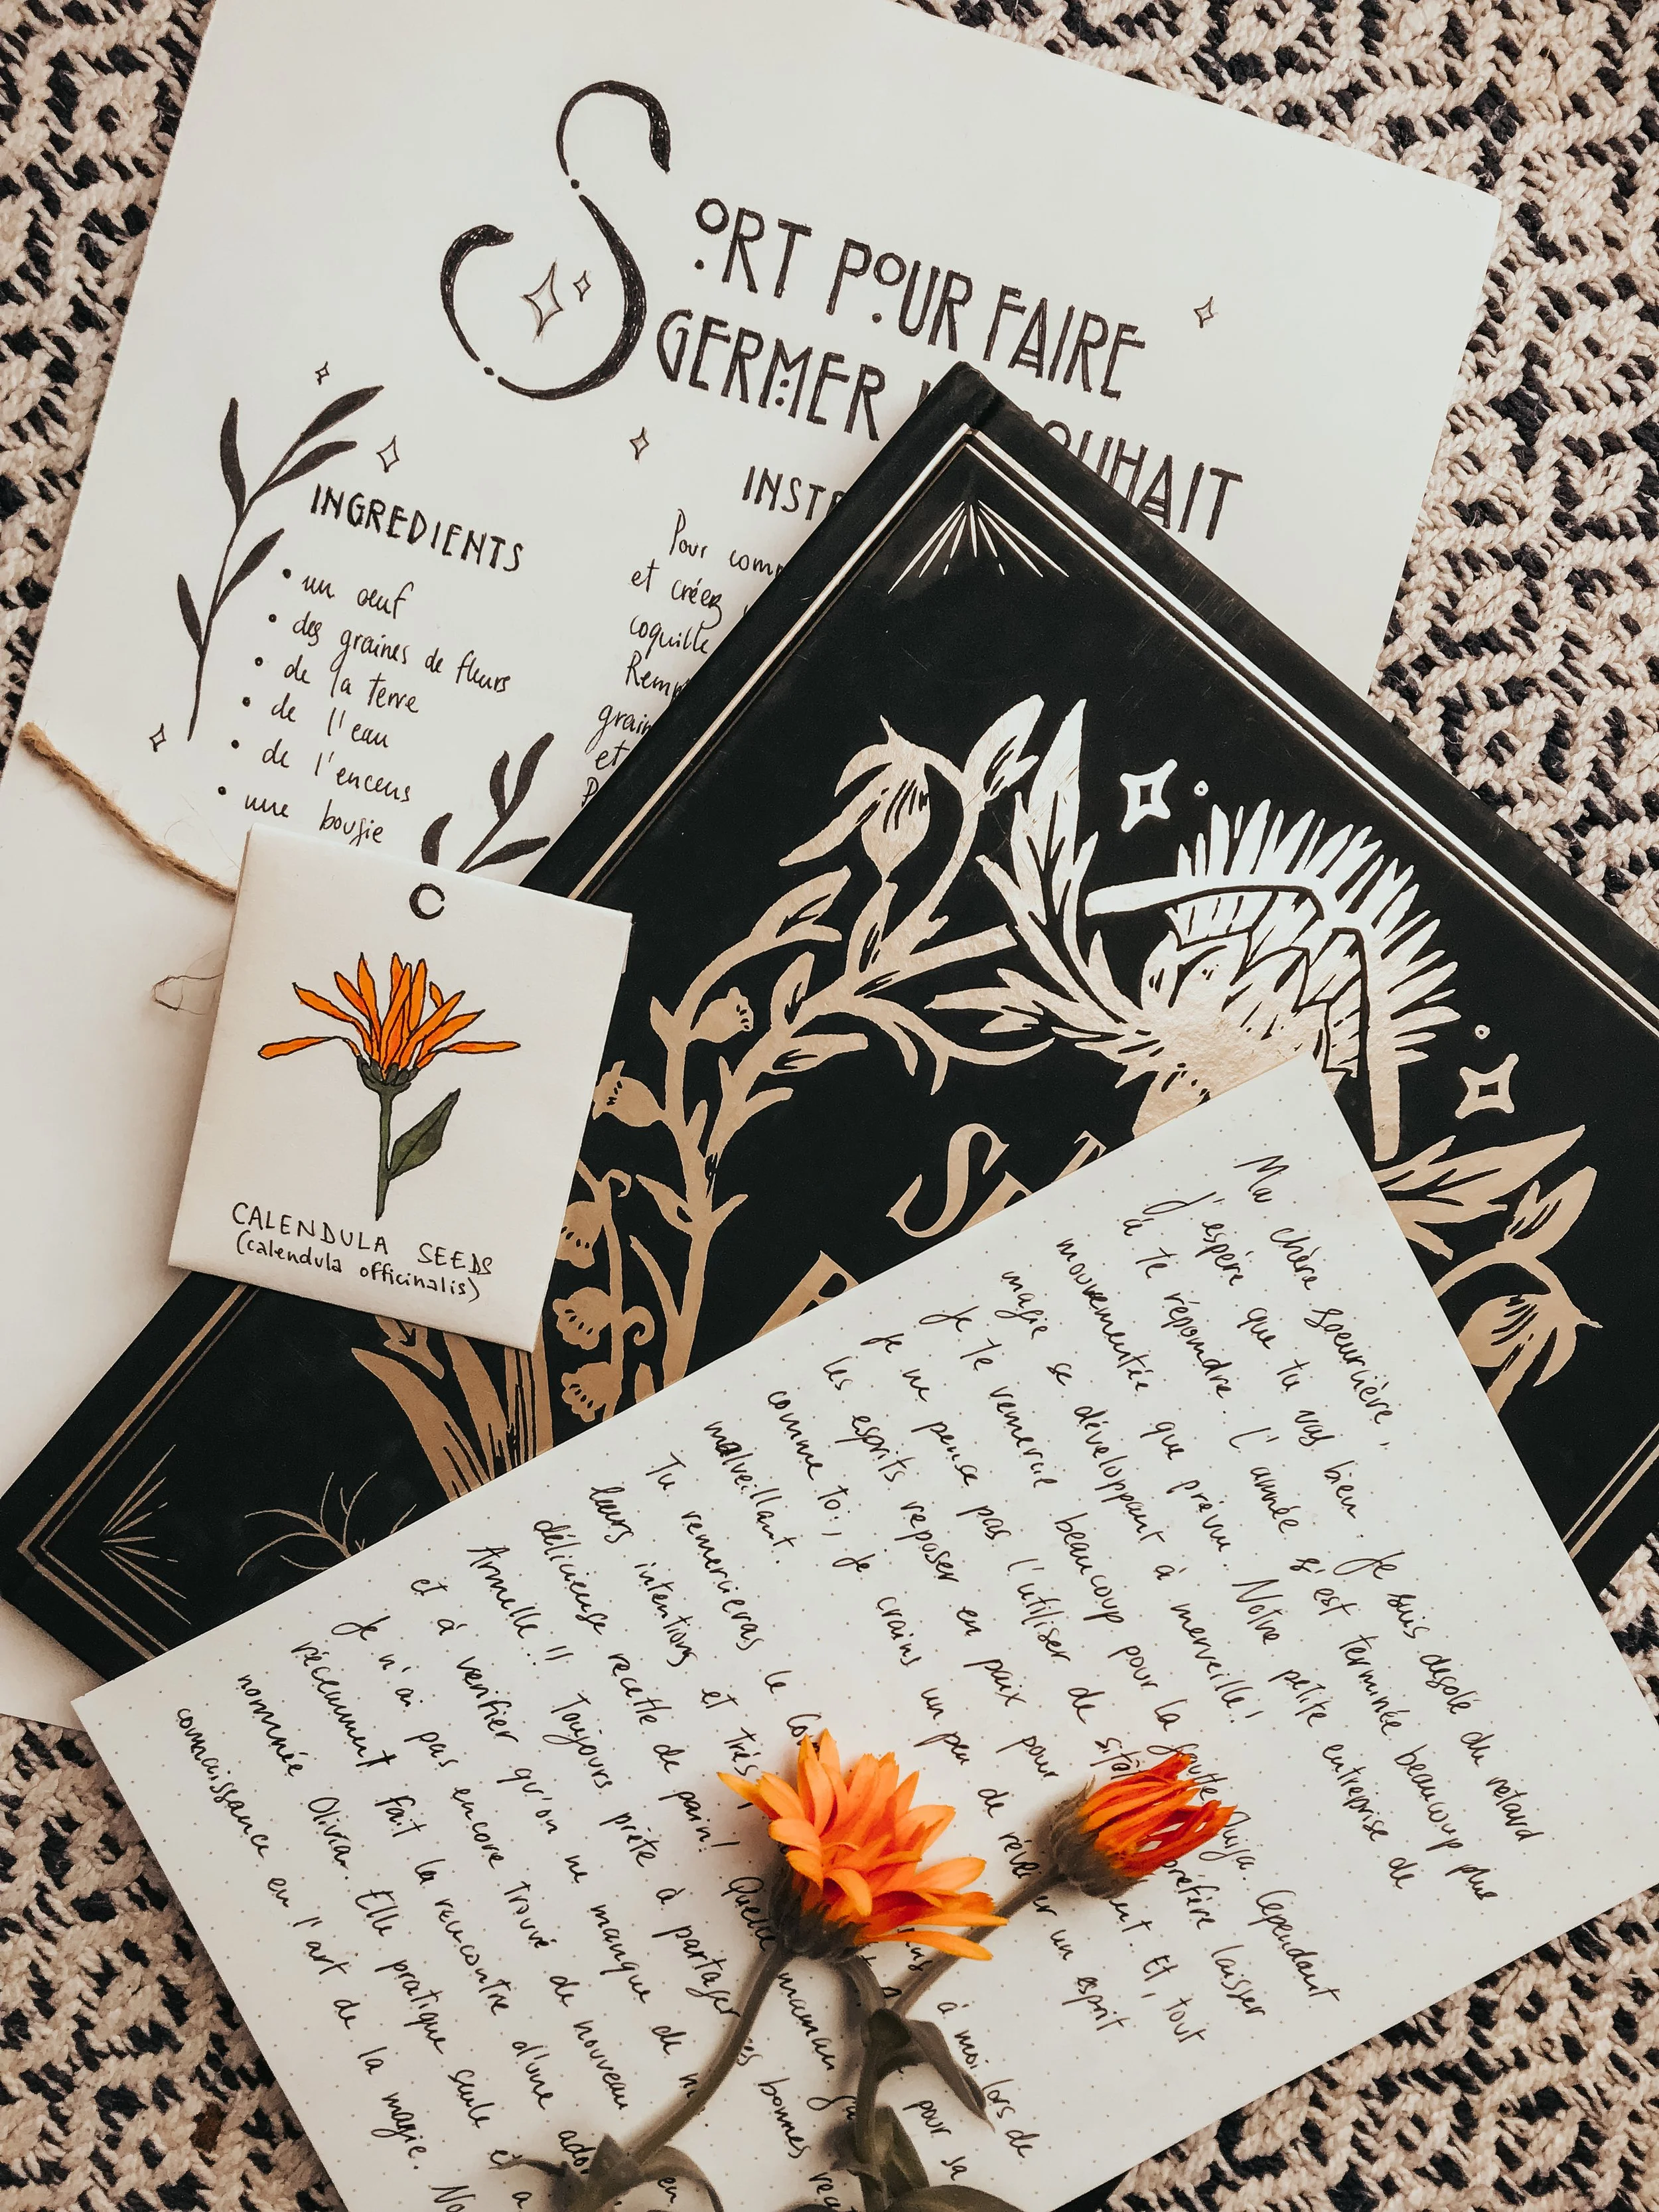 SORT POUR FAIRE
GERMER SOUHAIT
INGREDIENTS
• un oeuf
• des graines de fleurs
• de la terre
• de l'eau
• de l'encens
• une bougie
INST
Pour com
et créez
coquille
Rem
grain
et
CALENDULA SEEDS
(calendula officinalis)
Ma chère soeurcière,
J'espère que tu vas bien. Je suis desolé du retard
à te répondre. L'année s'est terminée beaucoup plus
mouvementée que prévu. Notre petite entreprise de
magie se développant à merveille!
Je te remercie beaucoup pour la goutte Ouija. Cependant
je ne pense pas l'utiliser de sitôt préfère laisser
les esprits reposer en paix pour ent. Et, tout
comme toi, je crains un peu de réveiller un esprit
malveillant.
Tu remercieras le à moi lors de
leurs intentions et très pour sa
délicieuse recette de pain! Quelle maman
Armelle!! Toujours prête à partager ses bonnes
et à vérifier qu'on ne manque de
Je n'ai pas encore trouvé de nouveau
récemment fait la rencontre d'une
nommée Olivia. Elle pratique seule et a
connaissance en l'art de la magie. No